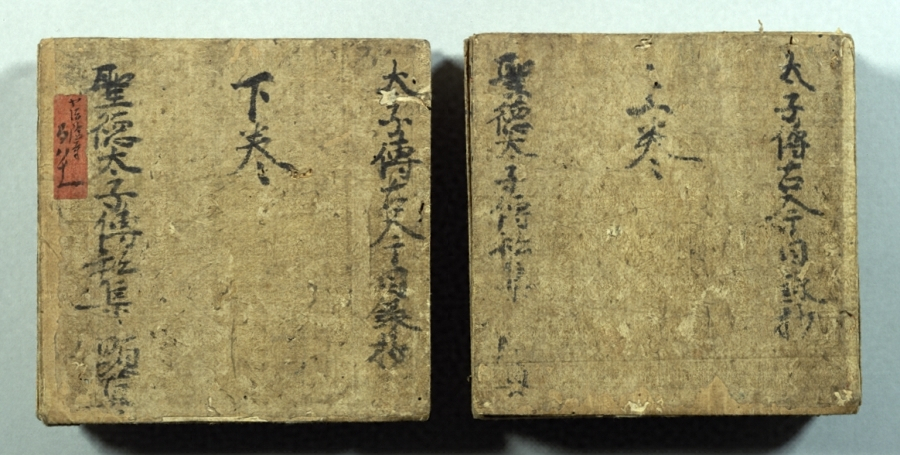 太子傳古今目録抄
上巻
聖徳太子傳私集
太子傳古今目録抄
下巻
聖徳太子傳私集